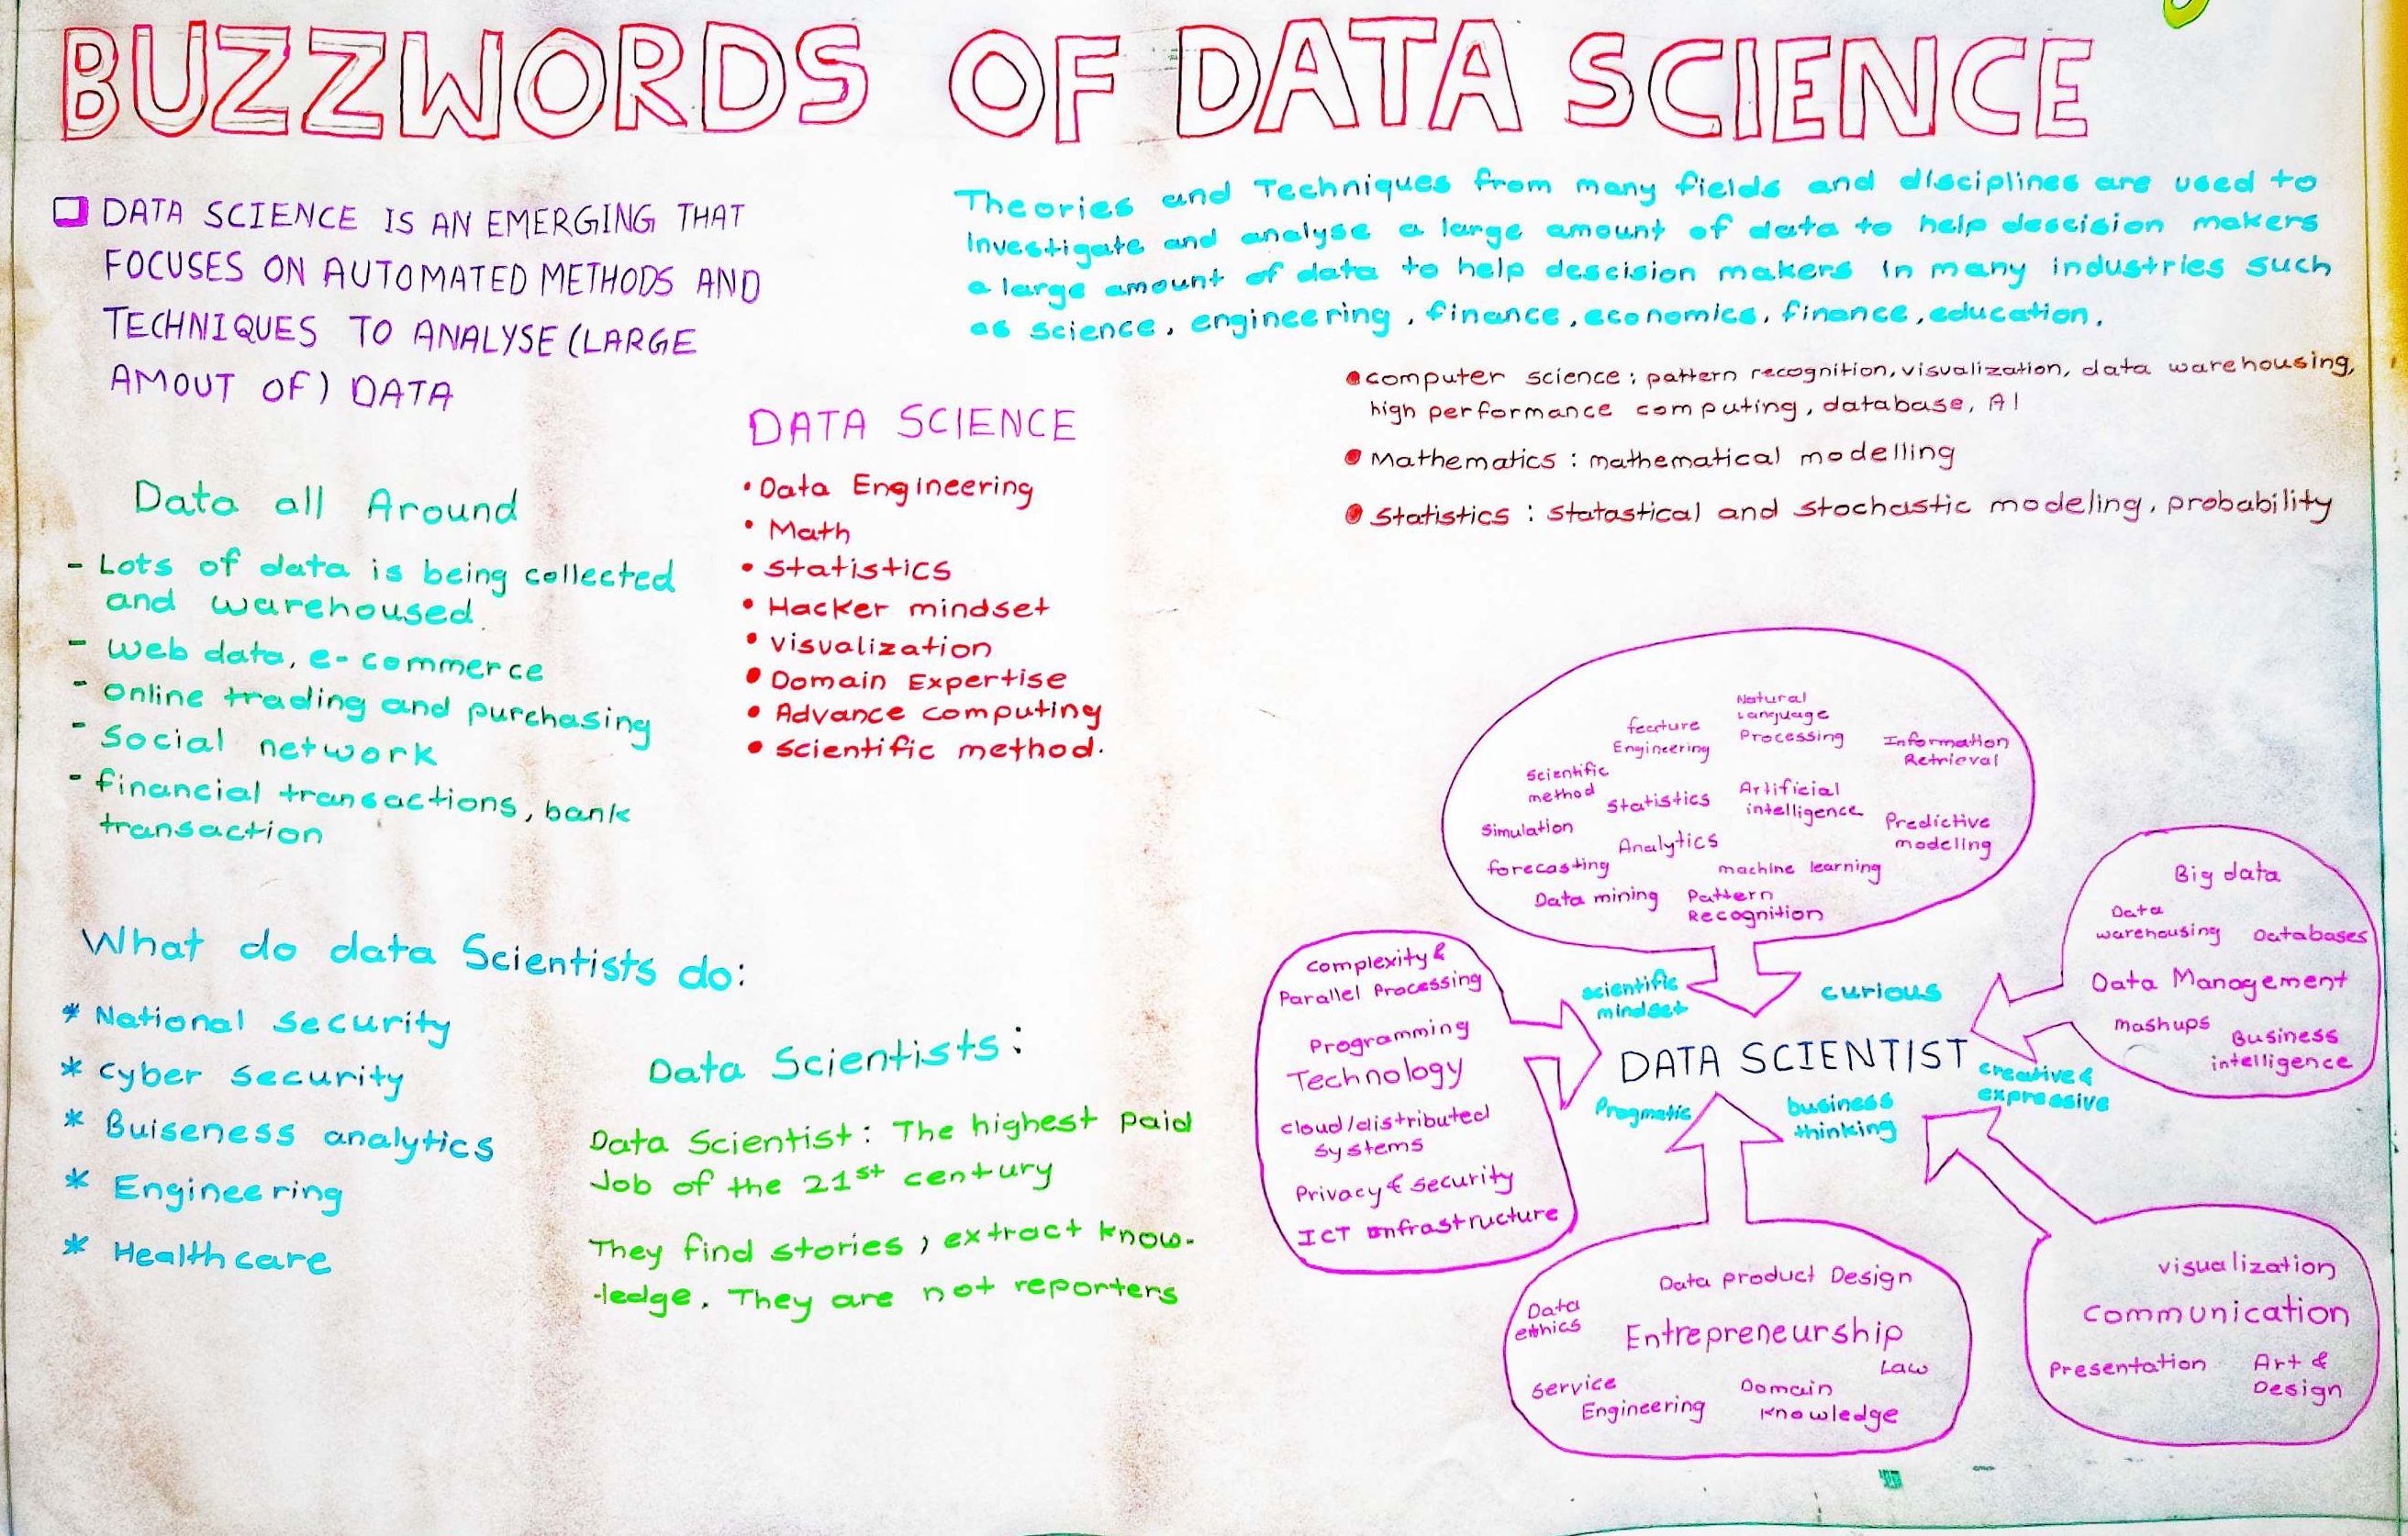 BUZZWORDS OF DATA SCIENCE
DATA SCIENCE IS AN EMERGING THAT
FOCUSES ON AUTOMATED METHODS AND
TECHNIQUES TO ANALYSE (LARGE
AMOUT OF) DATA
Theories and Techniques from many fields and disciplines are used to
investigate and analyse a large amount of data to help descision makers
a large amount of data to help descision makers in many industries such
as science, engineering, finance, economics, finance, education.
Computer science : pattern recognition, visualization, data warehousing,
high performance computing, database, AI
Mathematics : mathematical modelling
Statistics : statastical and stochastic modeling, probability
Data all Around
- Lots of data is being collected
and warehoused.
- Web data, e-commerce
- Online trading and purchasing
- Social network
- financial transactions, bank
transaction
DATA SCIENCE
• Data Engineering
• Math
• Statistics
• Hacker mindset
• visualization
• Domain Expertise
• Advance computing
• Scientific method.
What do data Scientists do:
* National security
* Cyber security
* Buiseness analytics
* Engineering
* Healthcare
Data Scientists:
Data Scientist: The highest paid
Job of the 21st century
They find stories, extract know-
-ledge. They are not reporters
Natural
Language
Processing
feature
Engineering
Information
Retrieval
Scientific
method
Statistics
Artificial
intelligence
Simulation
Analytics
Predictive
modeling
forecasting
machine learning
Data mining
Pattern
Recognition
Big data
Data
warehousing
Databases
Data Management
Mashups
Business
intelligence
Complexity &
Parallel Processing
Programming
Technology
cloud/distributed
systems
Privacy & security
ICT infrastructure
scientific
mindset
curious
DATA SCIENTIST
creative &
expressive
Pragmatic
business
thinking
Data product Design
Data
ethics
Entrepreneurship
Law
Service
Engineering
Domain
Knowledge
visualization
Communication
Presentation
Art &
Design